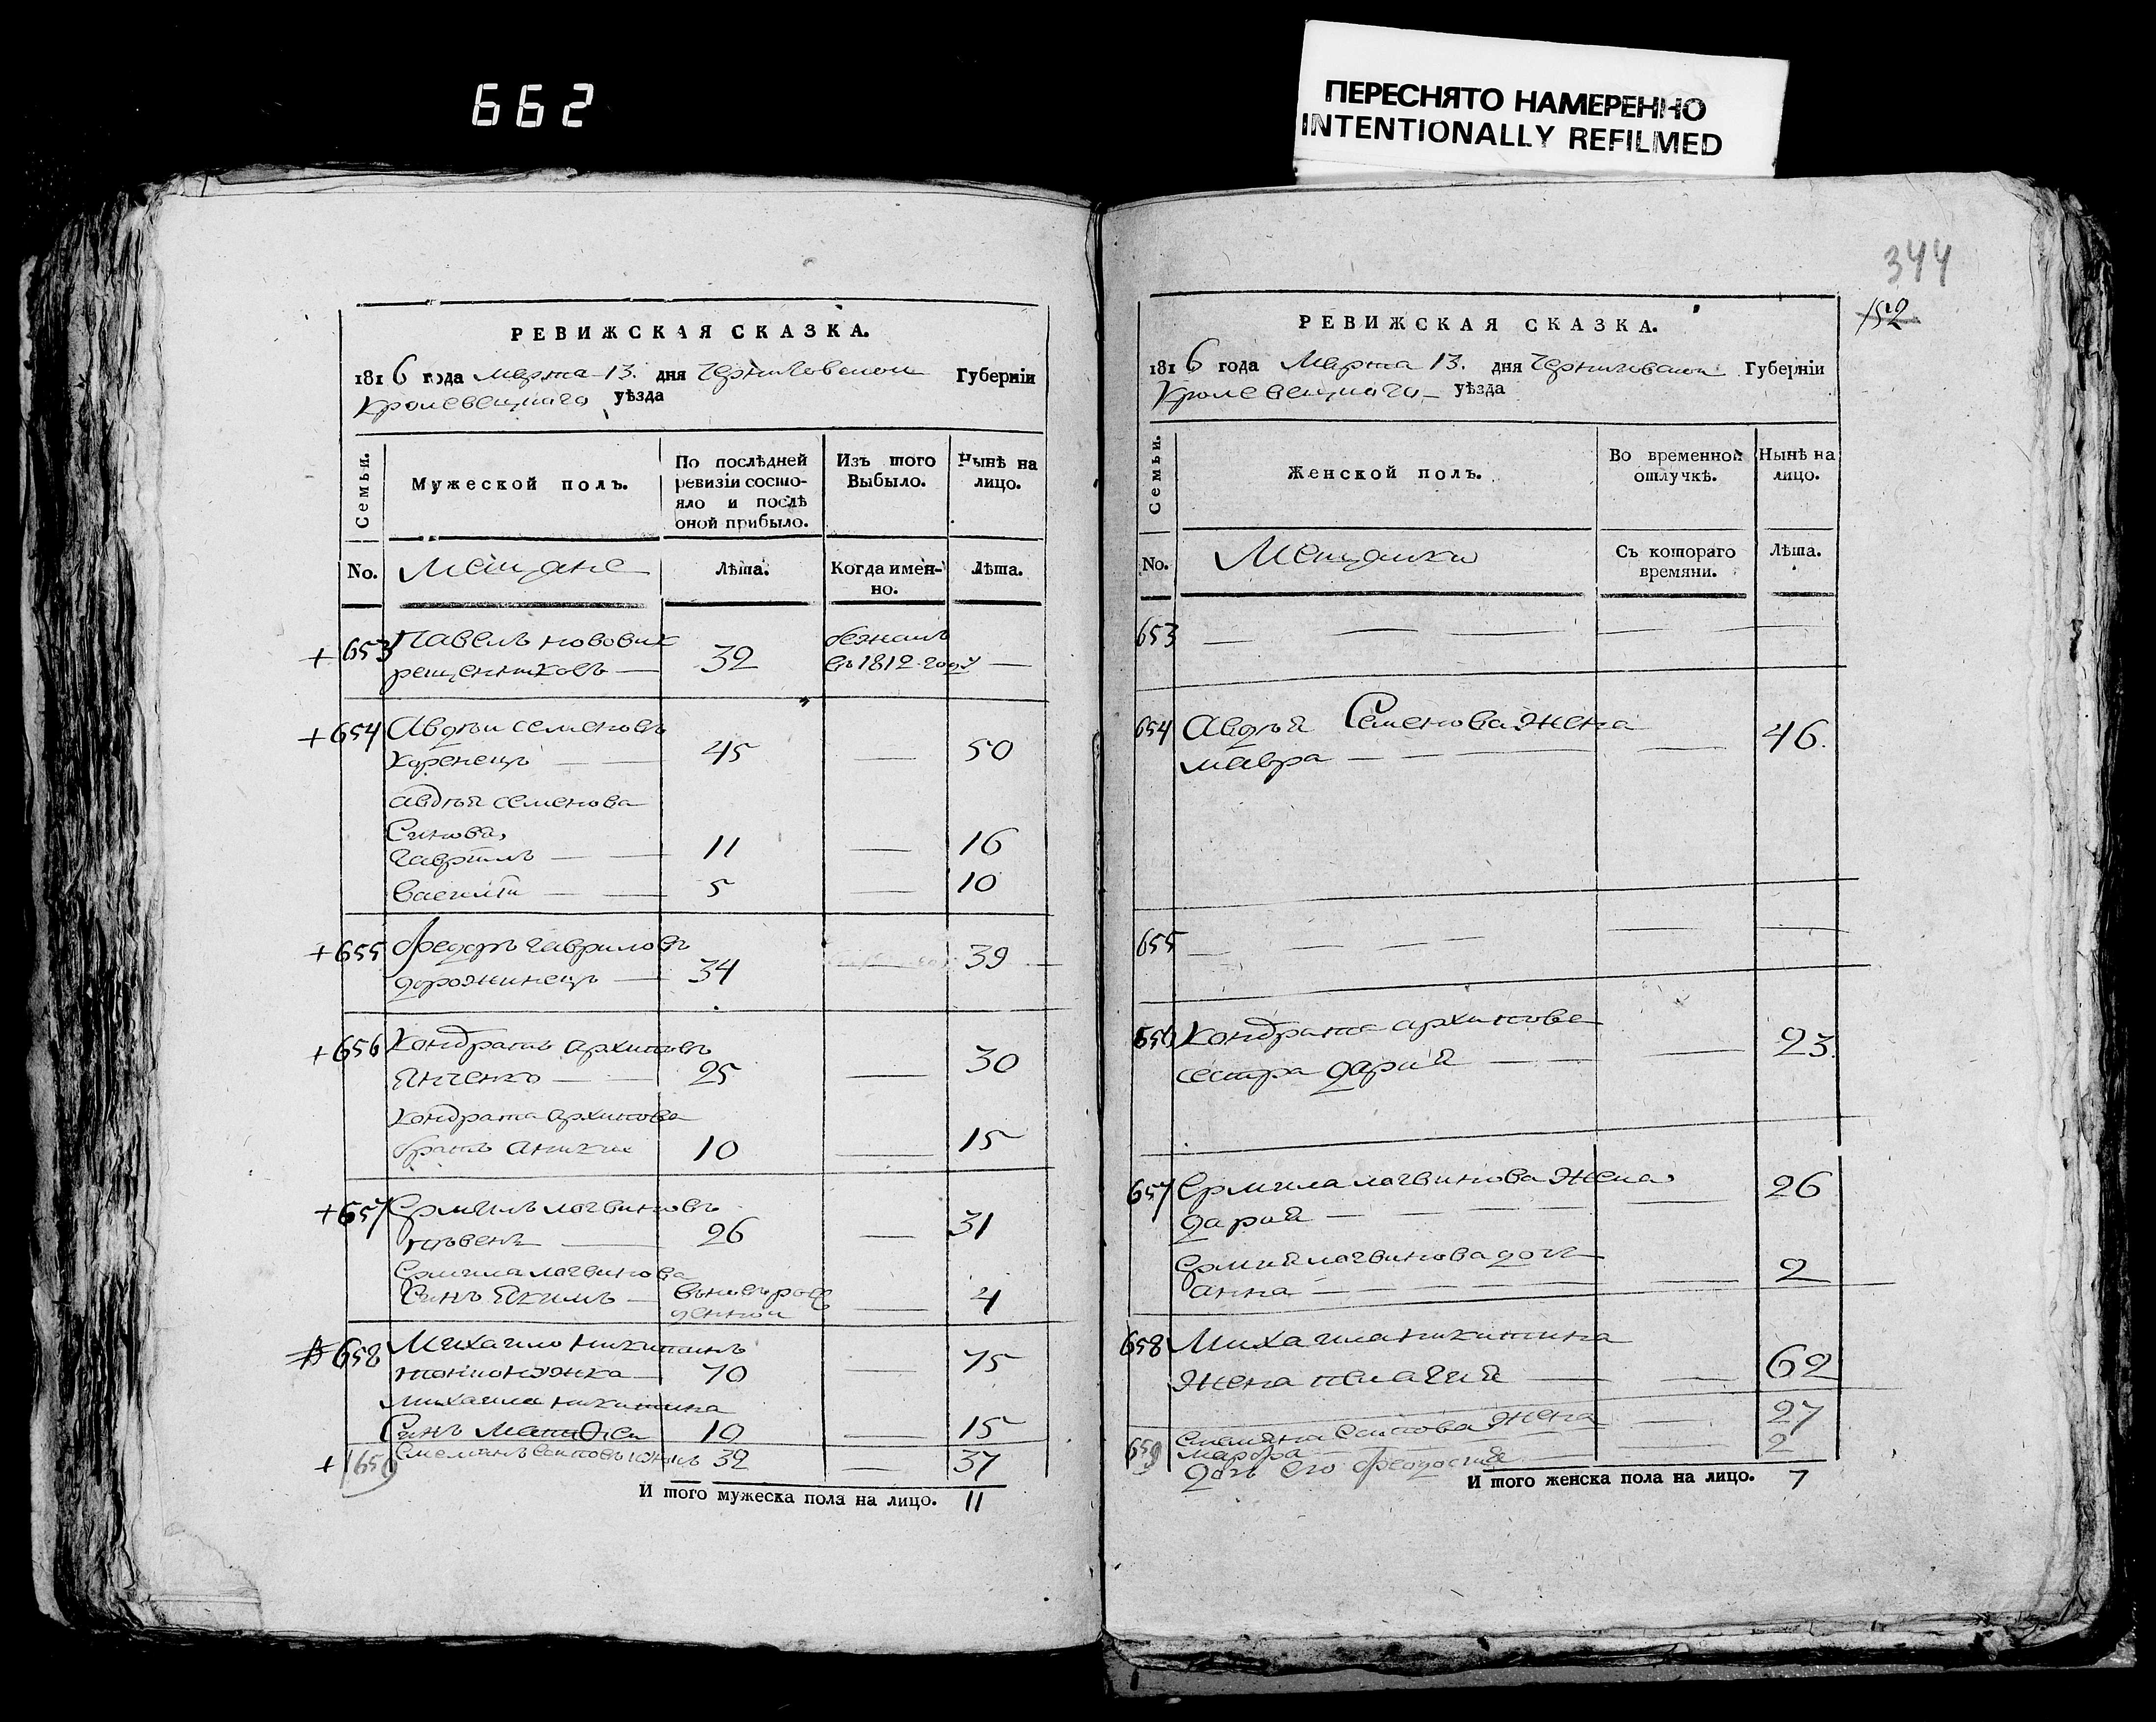 662
ПЕРЕСНЯТО НАМЕРЕННО
INTENTIONALLY REFILMED
РЕВИЖСКАЯ СКАЗКА.
1816 года марта 13. дня Черниговской Губерніи
Кролевецкаго уѣзда
Семьи.
Мужеской полъ.
По послѣдней ревизіи состо-
яло и послѣ
оной прибыло.
Изъ того
Выбыло.
Нынѣ на
лицо.
No. Мещане Лѣта. Когда имен-
но. Лѣта.
+ 653 Павелъ новових бежалъ
рещенниковъ — 32 въ 1812 году —
+ 654 Авдѣй семеновъ
Куренецъ — — 45 — 50
авдѣя семенова
Синова,
гаврилъ — — 11 — 16
василій — — 5 — 10
+ 655 Феодоръ гавриловъ 39
дорожинецъ — 34 —
+ 656 Кондратъ архиповъ
Янченко — — 25 — 30
кондрата архипова
братъ аникии 10 — 15
+ 657 Ермилъ логвиновъ
26 — 31
Ермила логвинова
Синъ Якимъ — вновь рож
денной — 4
658 Михайло никитинъ
70 — 75
михаила никитина
Синъ Матфей 10 — 15
+ 659 32 — 37
И того мужеска пола на лицо. 11
344
152
РЕВИЖСКАЯ СКАЗКА.
1816 года Марта 13. дня Черниговской Губерніи
Кролевецкаго уѣзда
Семьи.
Женской полъ.
Во временной
отлучкѣ.
Нынѣ на
лицо.
No. Мещанки Съ котораго
времяни. Лѣта.
653 — — — — —
654 Авдѣя Семенова жена
мавра — — — — 46.
655 — — — — — —
656 Кондрата архипова
сестра дария — — — 23.
657 Ермила логвинова жена
дария — — — — — 26
Ермила логвинова дочь
анна — — — — — 2
658 Михаила никитина
жена пелагия — — 62
659 жена — 27
марфа — — 2
дочь его феодосия —
И того женска пола на лицо. 7